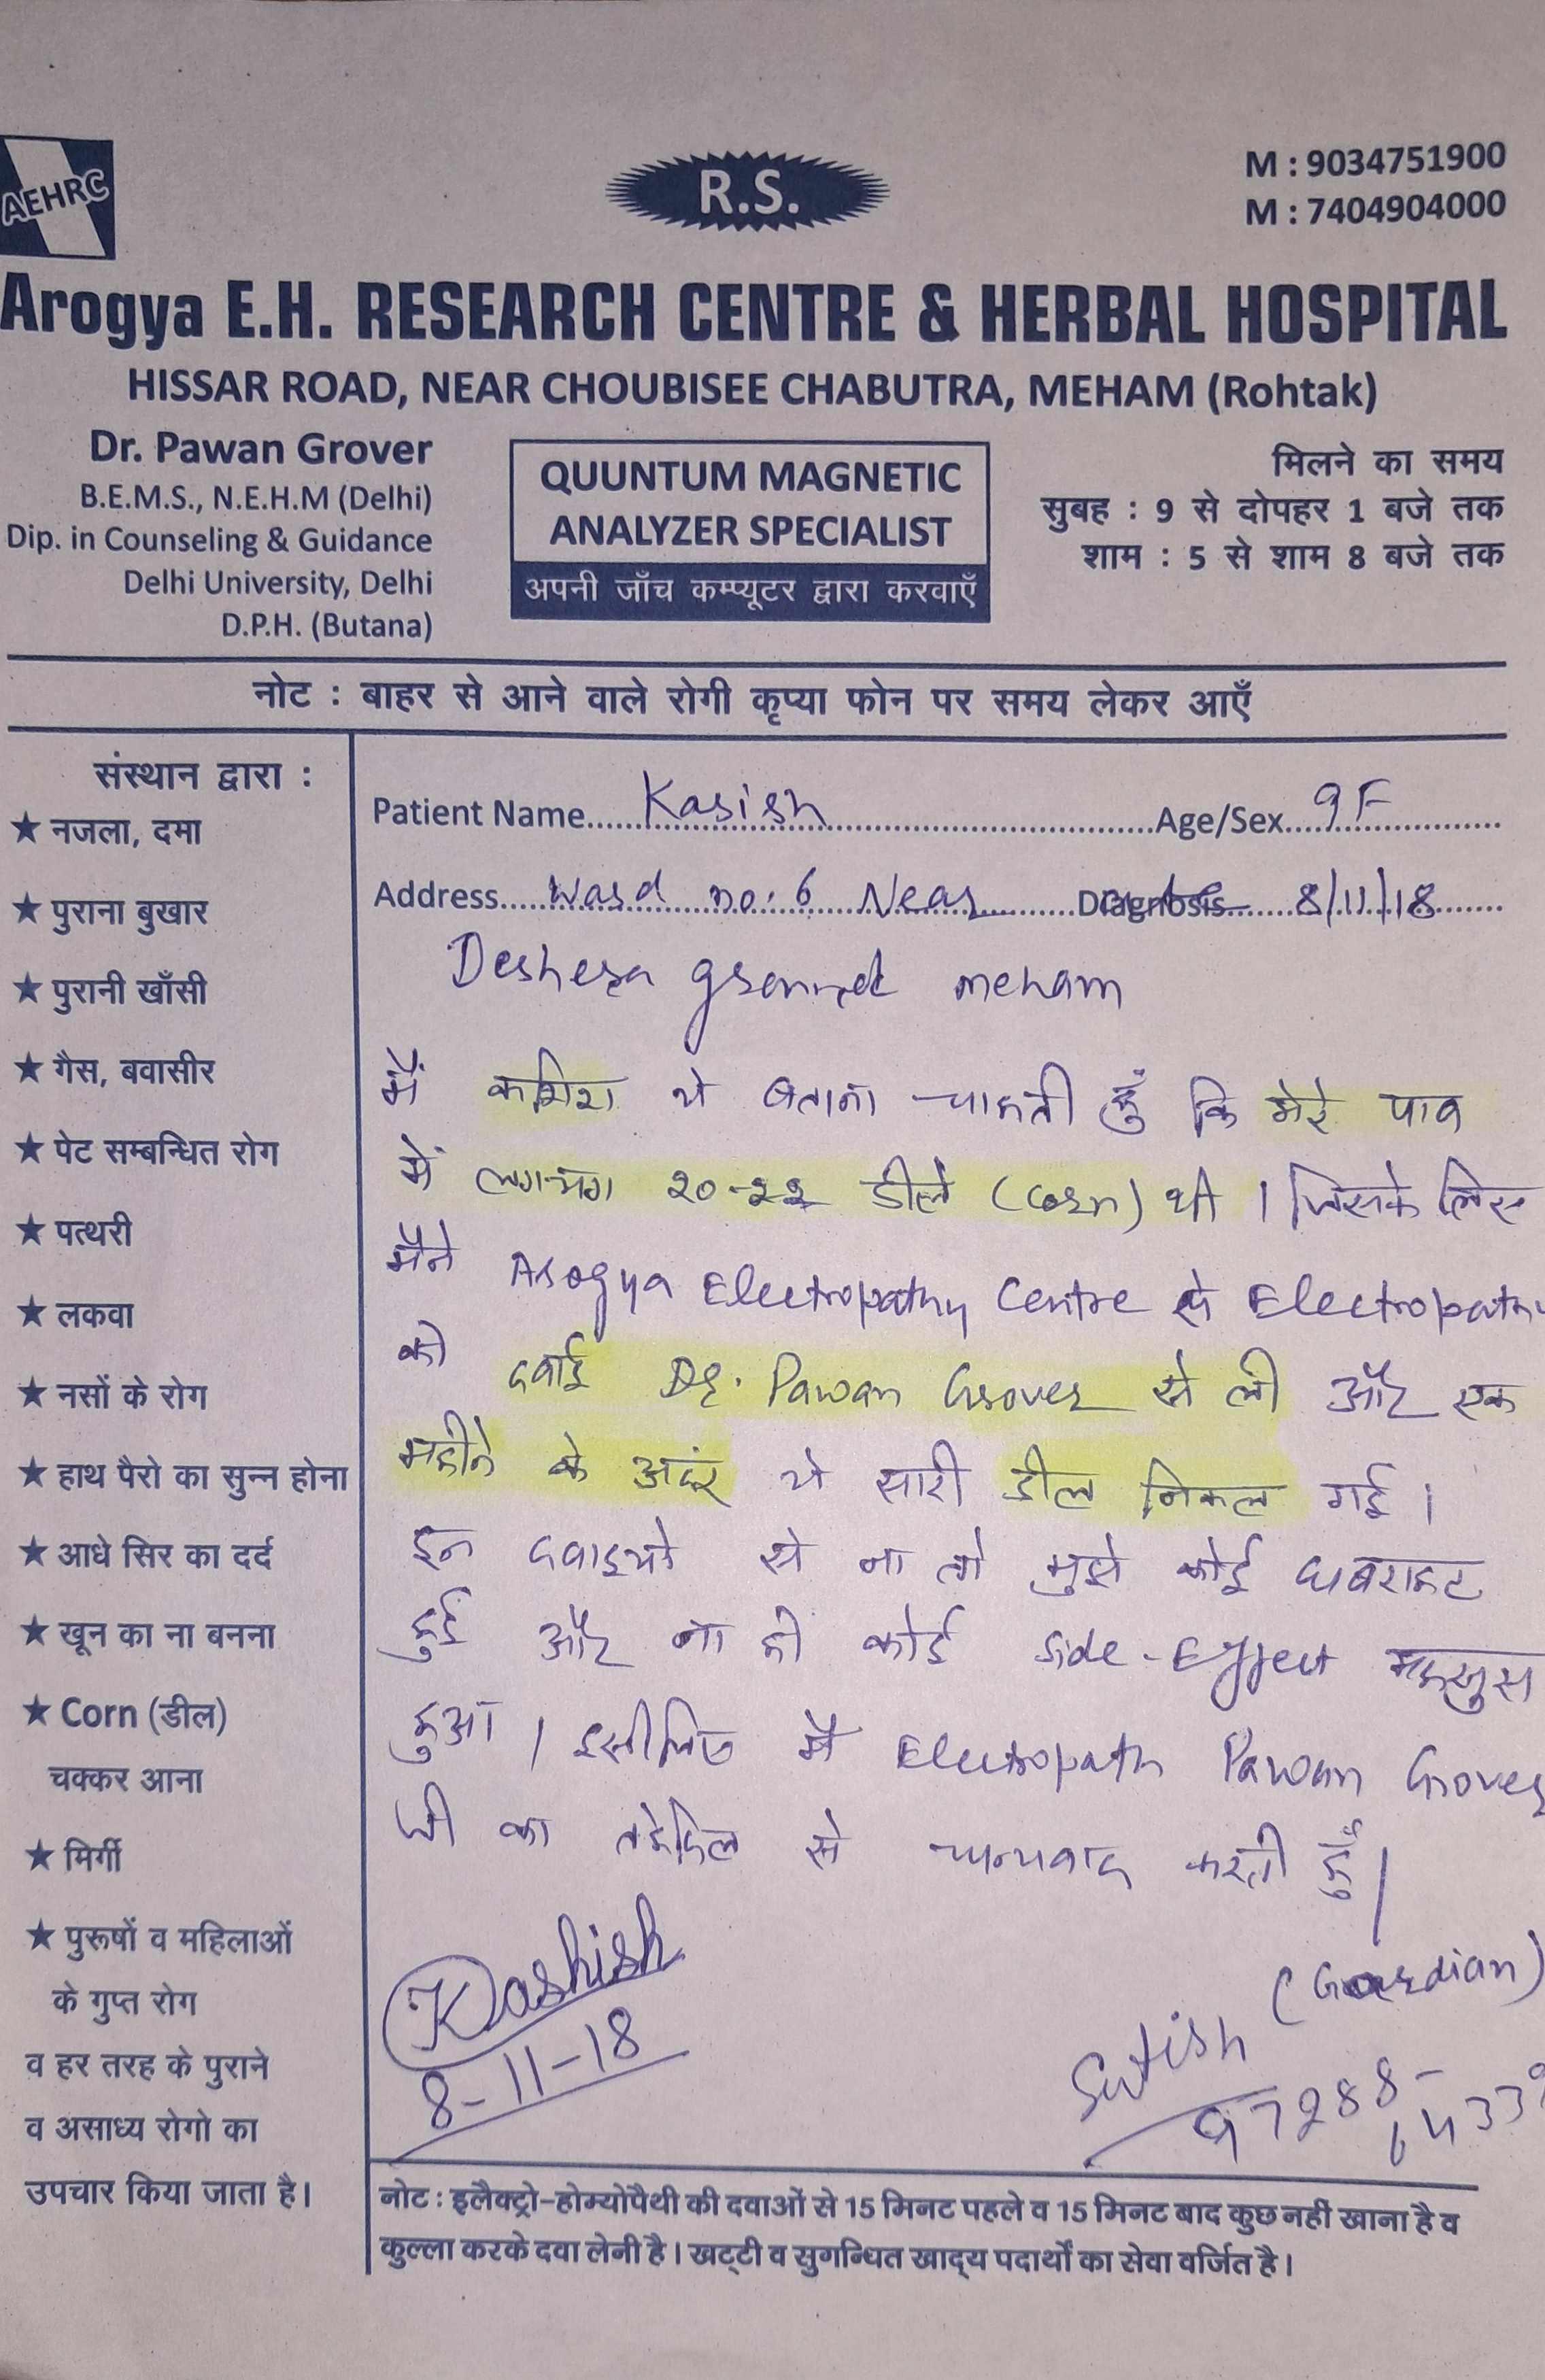 AEHRC
R.S.
M : 9034751900
M : 7404904000
Arogya E.H. RESEARCH CENTRE & HERBAL HOSPITAL
HISSAR ROAD, NEAR CHOUBISEE CHABUTRA, MEHAM (Rohtak)
Dr. Pawan Grover
B.E.M.S., N.E.H.M (Delhi)
Dip. in Counseling & Guidance
Delhi University, Delhi
D.P.H. (Butana)
QUUNTUM MAGNETIC
ANALYZER SPECIALIST
अपनी जाँच कम्प्यूटर द्वारा करवाएँ
मिलने का समय
सुबह : 9 से दोपहर 1 बजे तक
शाम : 5 से शाम 8 बजे तक
नोट : बाहर से आने वाले रोगी कृप्या फोन पर समय लेकर आएँ
संस्थान द्वारा :
★ नजला, दमा
★ पुराना बुखार
★ पुरानी खाँसी
★ गैस, बवासीर
★ पेट सम्बन्धित रोग
★ पत्थरी
★ लकवा
★ नसों के रोग
★ हाथ पैरो का सुन्न होना
★ आधे सिर का दर्द
★ खून का ना बनना
★ Corn (डील)
चक्कर आना
★ मिर्गी
★ पुरूषों व महिलाओं
के गुप्त रोग
व हर तरह के पुराने
व असाध्य रोगो का
उपचार किया जाता है।
Patient Name Kasish Age/Sex 9F
Address Ward no: 6 Near Diagnosis 8/11/18
Deshera ground meham
मैं कशिश ये बताना चाहती हूँ कि मेरे पाव
में लगभग २०-२२ डीले (Corn) थी । जिसके लिए
मैने Arogya Electropathy Centre से Electropathy
की दवाई Dr. Pawan Grover से ली और एक
महीने के अदंर ये सारी डील निकल गई ।
इन दवाइयो से ना तो मुझे कोई घबराहट
हुई और ना ही कोई Side-Effect महसुस
हुआ । इसीलिए मै Electropath Pawan Grover
जी का तहेदिल से धन्यवाद करती हूँ ।
Kashish
8-11-18
(Gaurdian)
Satish
97288-
नोट : इलैक्ट्रो-होम्योपैथी की दवाओं से 15 मिनट पहले व 15 मिनट बाद कुछ नहीं खाना है व
कुल्ला करके दवा लेनी है। खट्टी व सुगन्धित खाद्य पदार्थों का सेवा वर्जित है।